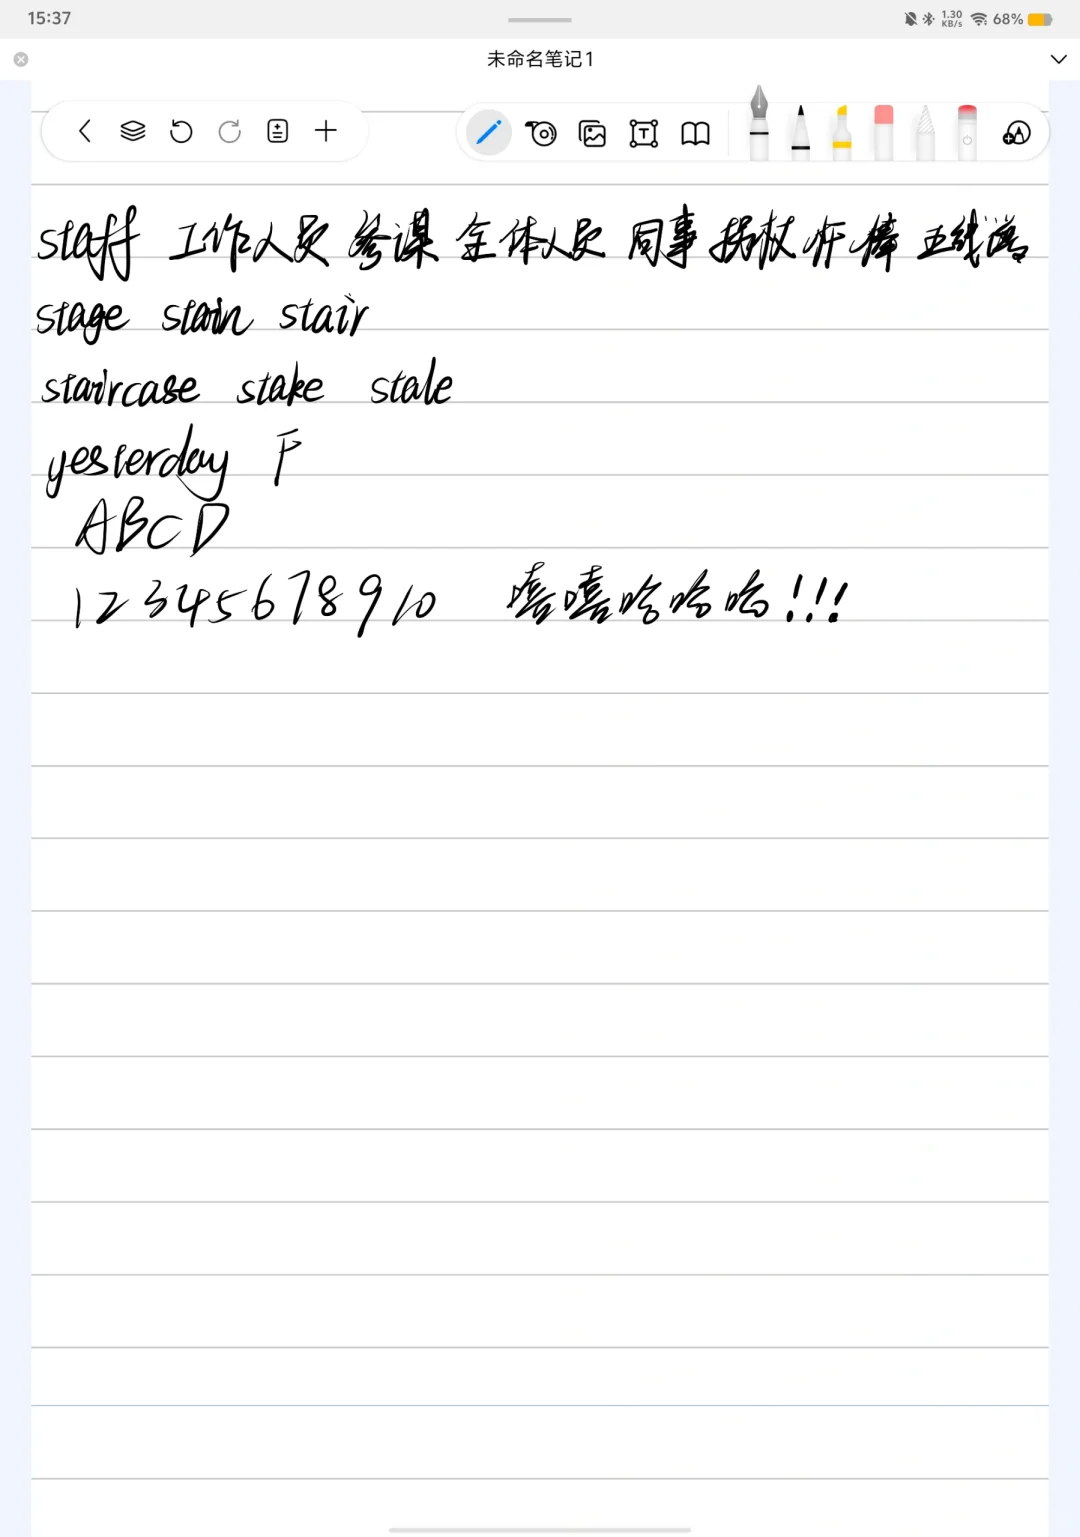 15:37 1.30 KB/s 68%
未命名笔记1
staff 工作人员 参谋 全体人员 同事 拐杖 杆 棒 五线谱
stage stain stair
staircase stake stale
yesterday F
ABCD
1 2 3 4 5 6 7 8 9 10 嘻嘻哈哈哈!!!